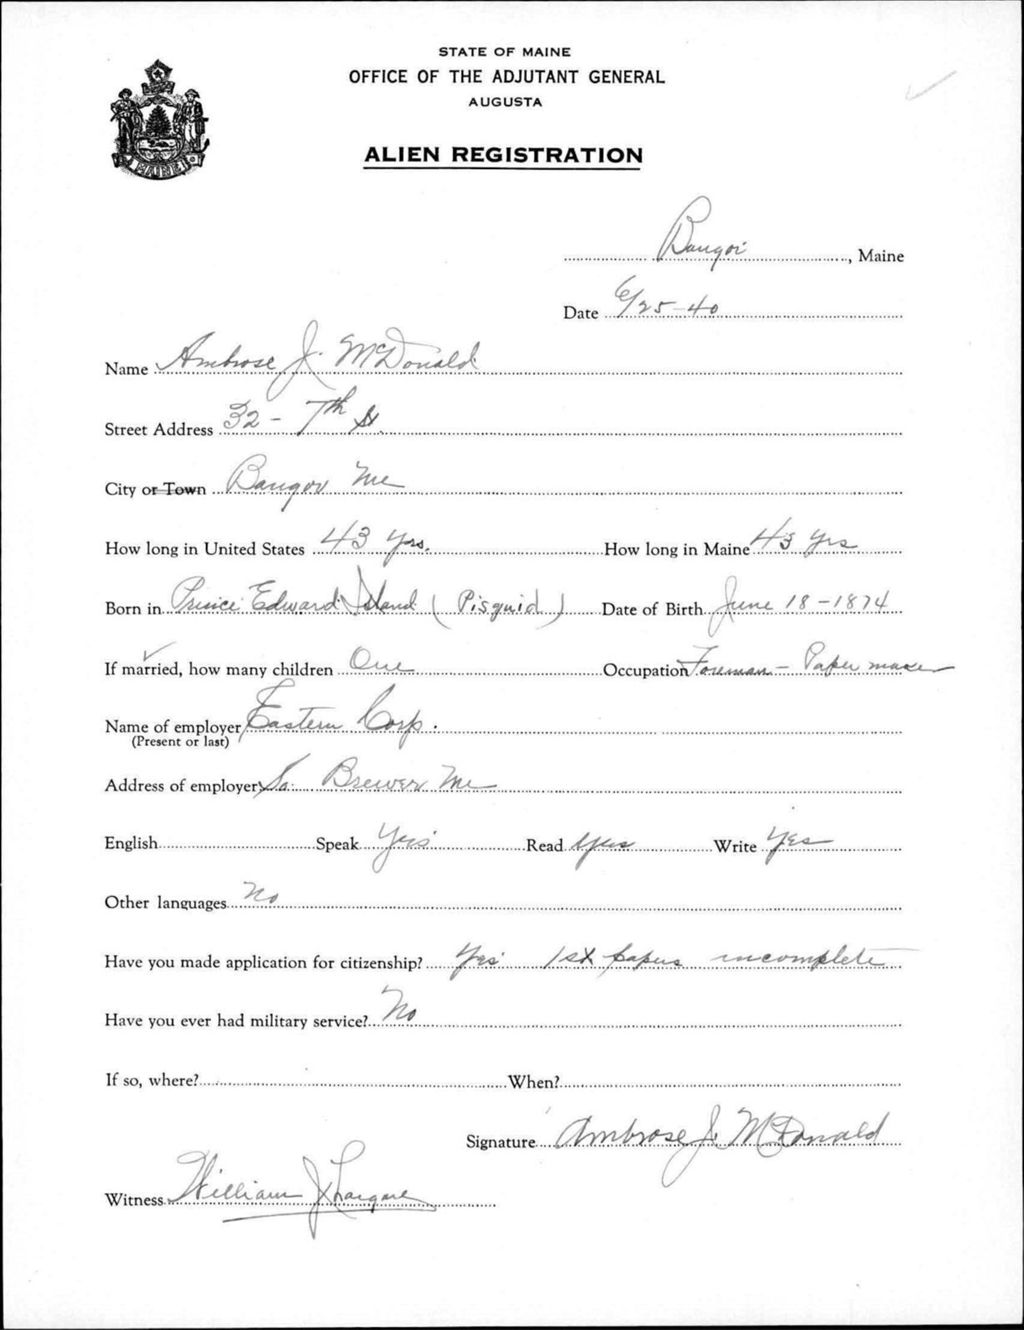 STATE OF MAINE
OFFICE OF THE ADJUTANT GENERAL
AUGUSTA
ALIEN REGISTRATION
MAINE
Bangor, Maine
Date 6/25-40
Name Ambrose J. McDonald
Street Address 32 - 7th St
City or Town Bangor Me
How long in United States 43 yrs. How long in Maine 43 yrs
Born in Prince Edward Island (Pisquid) Date of Birth June 18-1874
If married, how many children One Occupation Foreman - Paper maker
Name of employer Eastern Corp.
(Present or last)
Address of employer So. Brewer Me
English Speak Yes Read yes Write Yes
Other languages No
Have you made application for citizenship? Yes 1st papers incomplete
Have you ever had military service? No
If so, where? When?
Signature Ambrose J. McDonald
Witness William J.